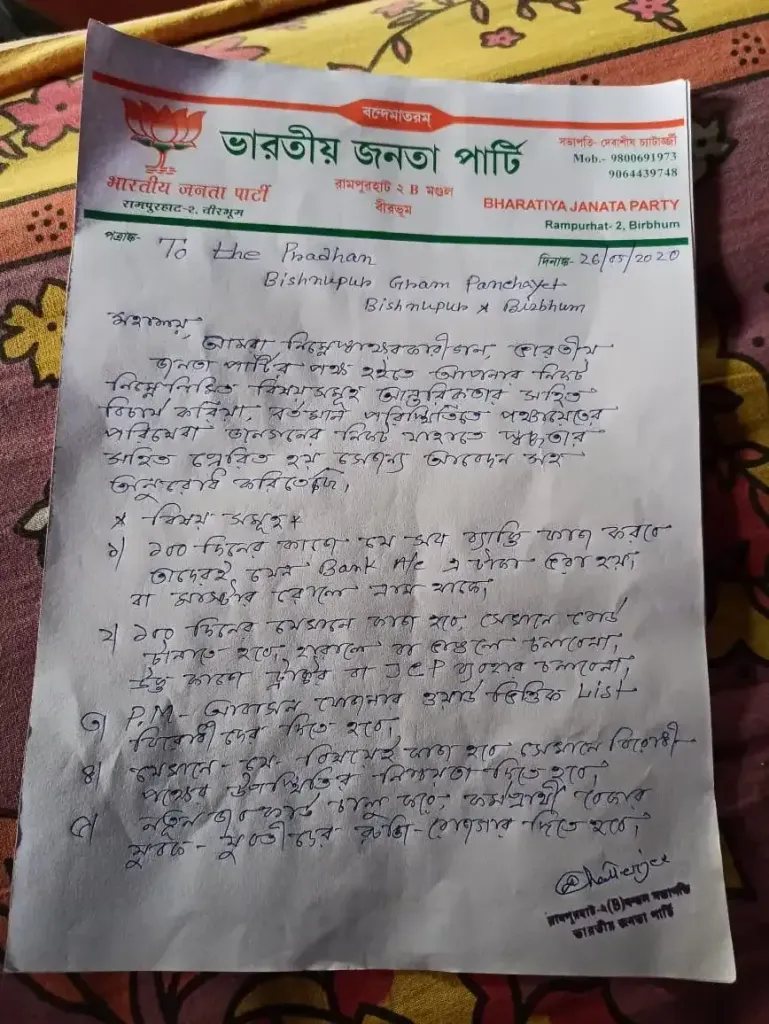 বন্দেমাতরম্
ভারতীয় জনতা পার্টি
সভাপতি- দেবাশীষ চ্যাটার্জ্জী
Mob.- 9800691973
9064439748
भारतीय जनता पार्टी
রামপুরহাট-২, বীরভূম
রামপুরহাট ২ B মণ্ডল
বীরভূম
BHARATIYA JANATA PARTY
Rampurhat- 2, Birbhum
পত্রাঙ্ক-
দিনাঙ্ক- 26/05/2020
To the Pradhan
Bishnupur Gram Panchayet
Bishnupur * Birbhum
মহাশয়,
আমরা নিম্নস্বাক্ষরকারীগন, ভারতীয়
জনতা পার্টির পক্ষ হইতে আপনার নিকট
নিম্নলিখিত বিষয় সমূহ আন্তরিকতার সহিত
বিচার করিয়া, বর্তমান পরিস্থিতিতে পঞ্চায়েতের
পরিষেবা জনগনের নিকট যাহাতে স্বচ্ছতার
সহিত প্রেরিত হয় সেজন্য আবেদন সহ
অনুরোধ করিতেছি।
* বিষয় সমূহ *
১) ১০০ দিনের কাজে যে সব ব্যাক্তি কাজ করবে
তাদেরই যেন Bank A/c এ টাকা দেওয়া হয়,
বা মাস্টার রোলে নাম থাকে,
২) ১০০ দিনের যেখানে কাজ হবে, সেখানে বোর্ড
টানাতে হবে, হারালে বা চলবেনা,
উক্ত কাজে ট্রাক্টর বা JCP ব্যবহার চলবেনা,
৩) P.M- আবাসন যোজনার ওয়ার্ড ভিত্তিক List
বিরোধীদের দিতে হবে,
৪) যেখানে- যে- বিষয়েই কাজ হবে সেখানে বিরোধী
পক্ষের উপস্থিতির নিশ্চয়তা দিতে হবে,
৫) নতুন জব কার্ড চালু করে, কর্মপ্রার্থী বেকার
যুবক- যুবতীদের রুজি-রোজগার দিতে হবে,
Chatterjee
রামপুরহাট-২(B)মণ্ডল সভাপতি
ভারতীয় জনতা পার্টি